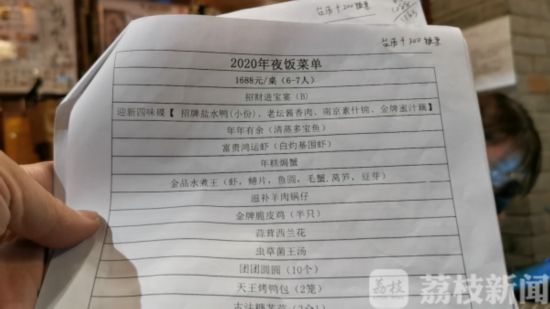 2020年夜饭菜单
1688元/桌(6-7人)
招财进宝宴(B)
迎新四味碟【 招牌盐水鸭(小份)、老坛酱香肉、南京素什锦、金牌蜜汁藕】
年年有余(清蒸多宝鱼)
富贵鸿运虾(白灼基围虾)
年糕焗蟹
金品水煮王(虾,鳝片,鱼圆,毛蟹,莴笋,豆芽)
滋补羊肉锅仔
金牌脆皮鸡(半只)
蒜茸西兰花
虫草菌王汤
团团圆圆(10个)
天王烤鸭包(2笼)
荔枝 荔枝新闻